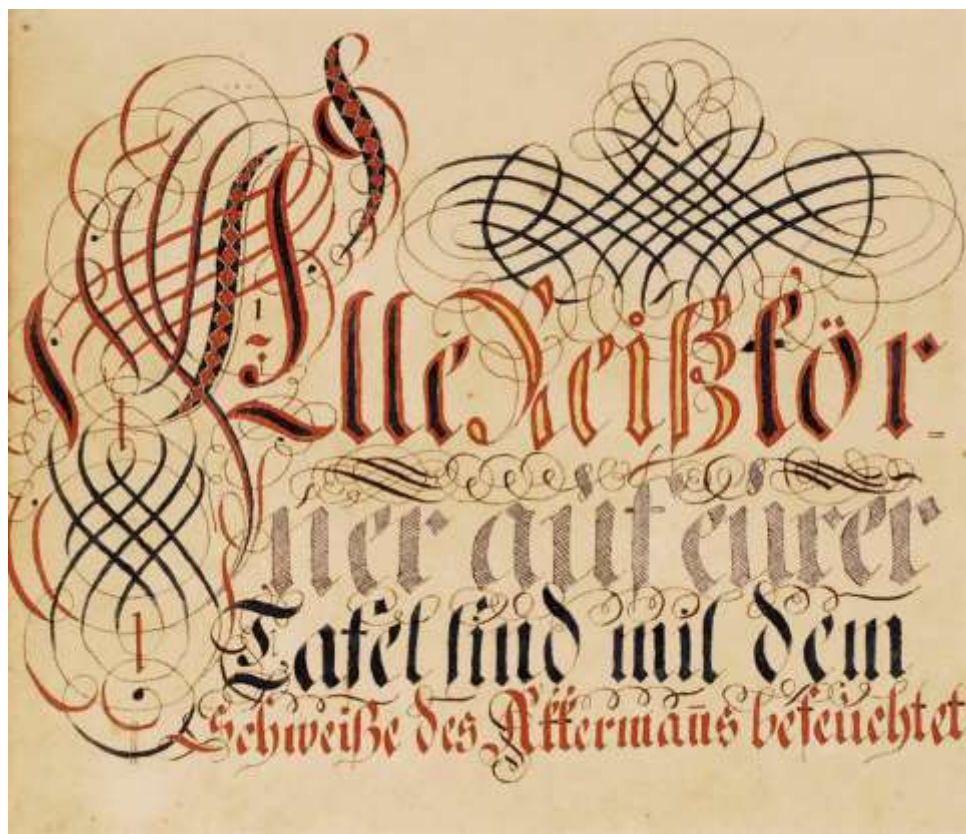 Alle Reißkör=
ner auf eurer
Tafel sind mit dem
Schweiße des Akkerman̄s befeuchtet